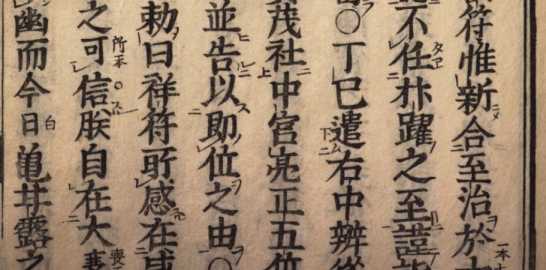 符惟新合至治於
不任抃躍之至謹
〇丁巳遣右中辨從
茂社中官亮正五位
並告以即位之由〇
勅曰祥符所感在
之可信朕自在大
幽而今日龜甘露之